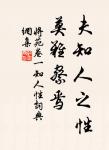 夫知人之性
莫難察焉
將苑卷一知人性詞典
網集